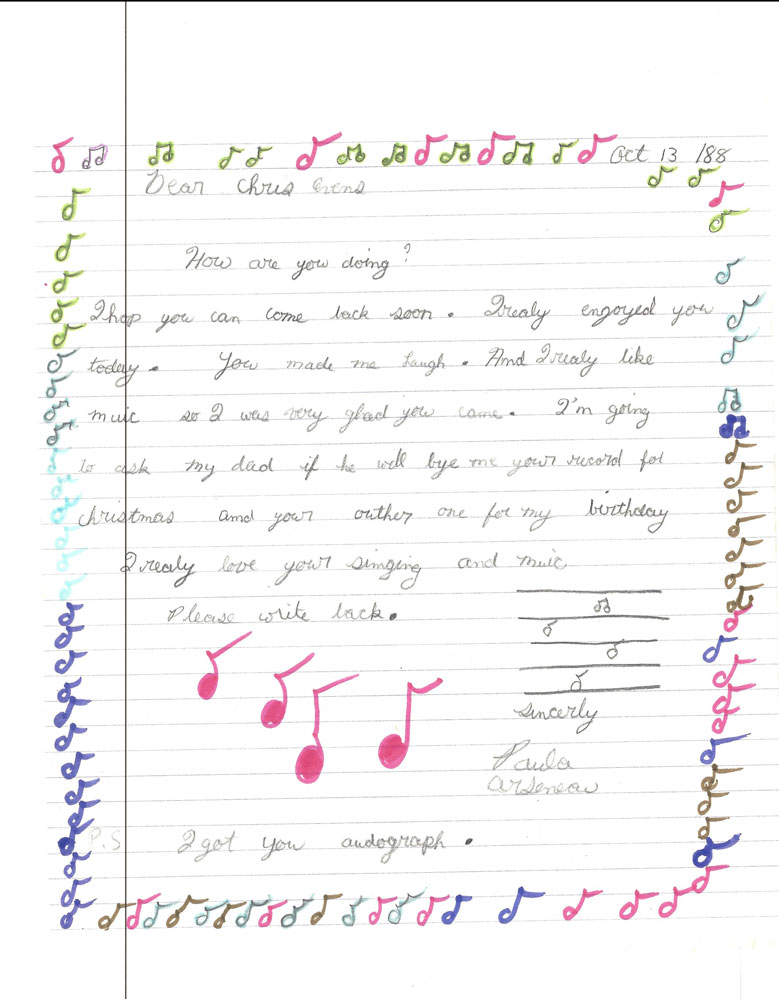 Oct 13 /88
Dear Chris Evens
How are you doing?
I hop you can come back soon. I realy engoyed you
today. You made me laugh. And I realy like
muic so I was very glad you came. I'm going
to ask my dad if he will bye me your record for
christmas and your outher one for my birthday
I realy love your singing and muic
Please write back.
sincerly
Paula
Arseneau
P.S I got you audograph.